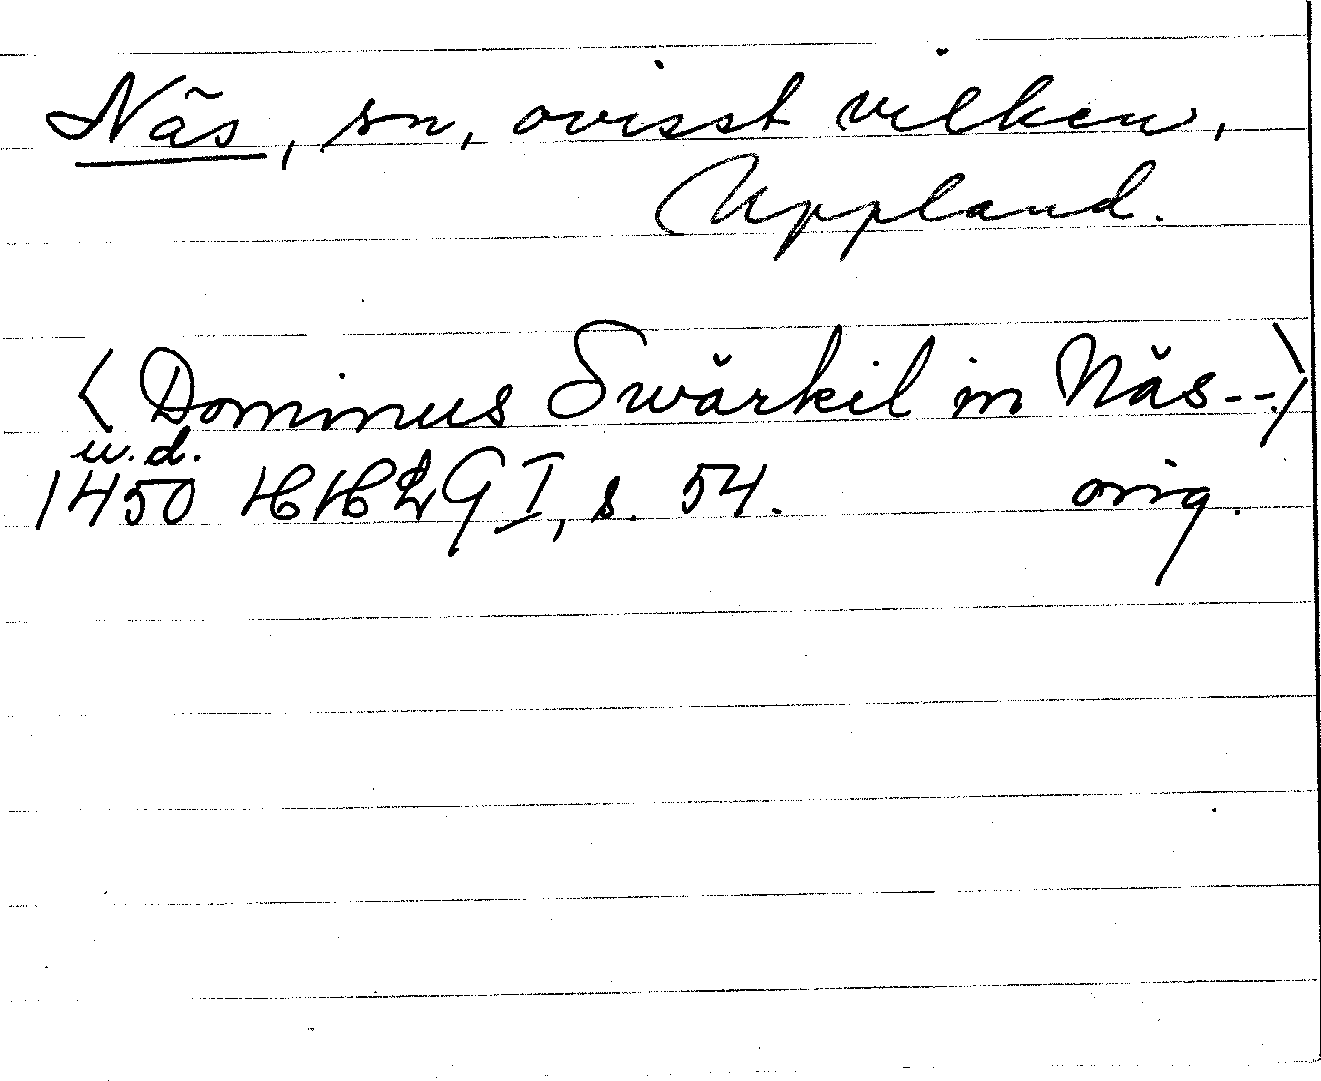 Näs, sn, ovisst vilken,
Uppland.
⟨Dominus Swärkil in Näs--⟩
u.d.
1450 HHLG I, s. 54. orig.